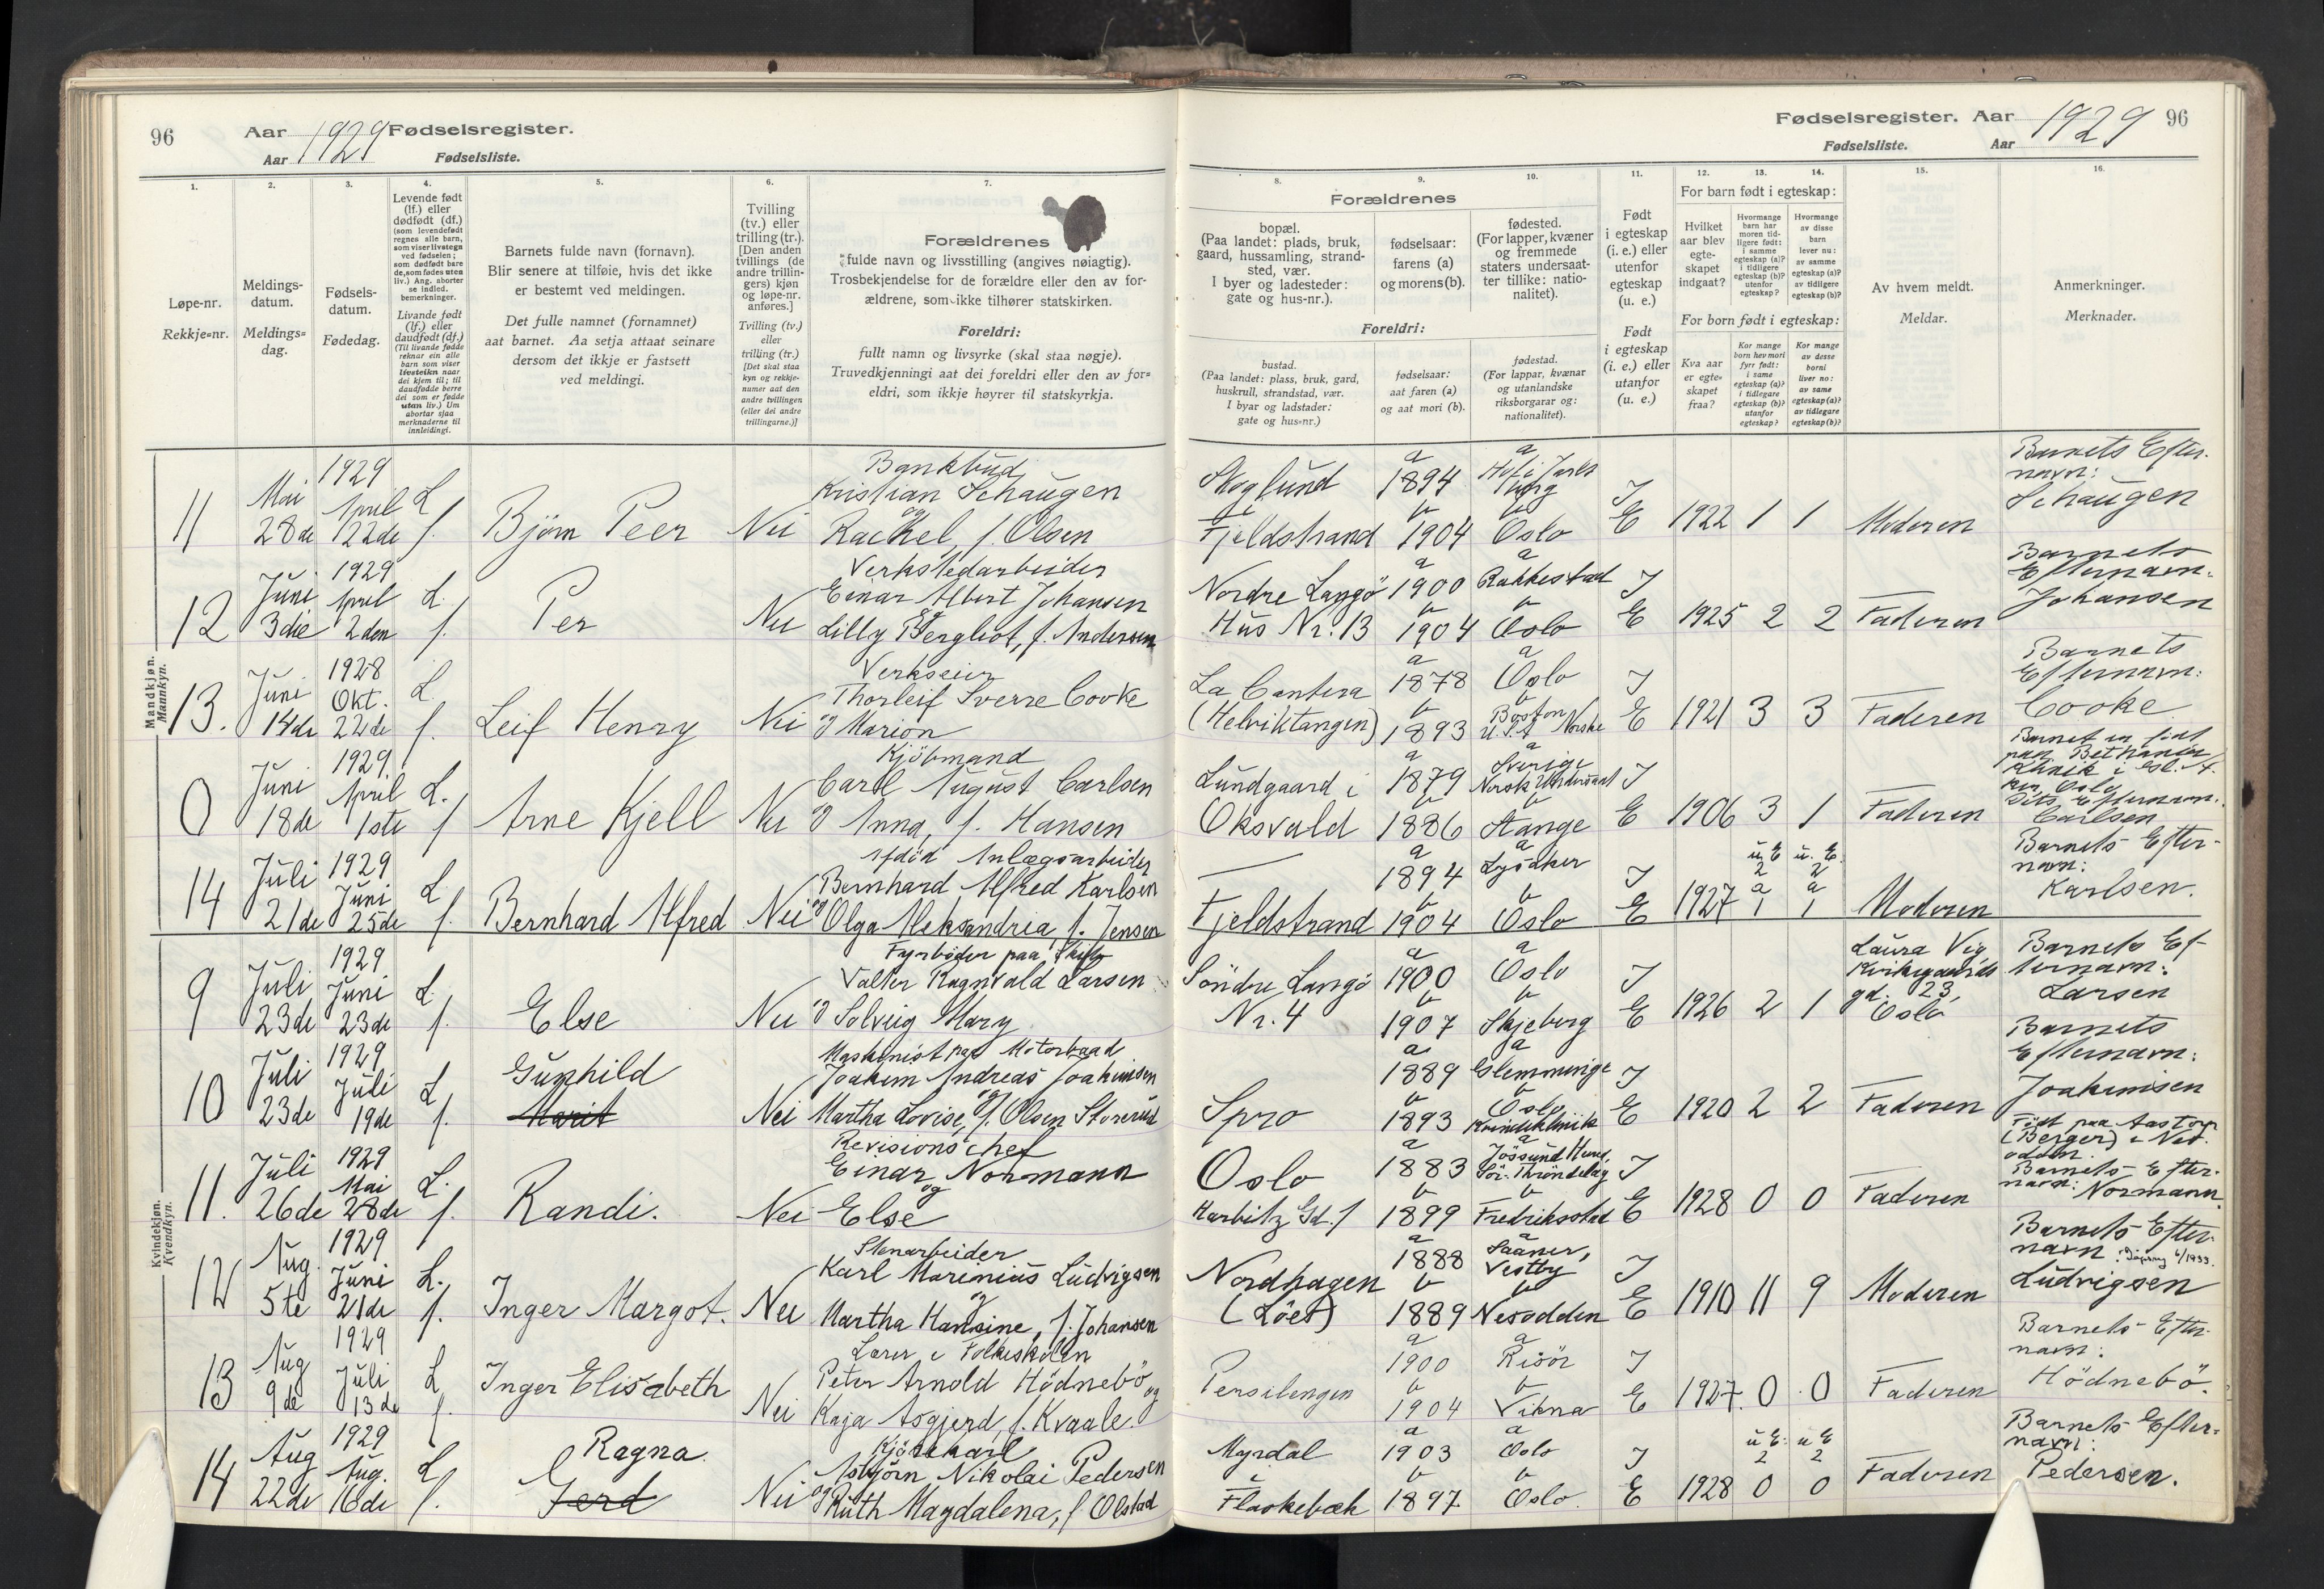 96
Aar 1929 Fødselsregister.
Aar
Fødselsliste.
1.
Løpe-nr.
Rekkje=nr.
2.
Meldings-
datum.
Meldings=
dag.
3.
Fødsels-
datum.
Fødedag.
4.
Levende født
(lf.) eller
dødfødt (df.)
(som levendefødt
regnes alle barn,
som viser livstegn
ved fødselen;
som dødfødt bare
de, som fødes uten
liv.) Ang. aborter
se indled.
bemerkninger.
Livande født
(lf.) eller
daudfødt (df.)
(Til livande fødde
reknar ein alle
barn som viser
livsteikn naar
dei kjem til; til
daudfødde berre
dei som er fødde
utan liv.) Um
abortar sjaa
merknaderne til
innleidingi.
5.
Barnets fulde navn (fornavn).
Blir senere at tilføie, hvis det ikke
er bestemt ved meldingen.
Det fulle namnet (fornamnet)
aat barnet. Aa setja attaat seinare
dersom det ikkje er fastsett
ved meldingi.
6.
Tvilling
(tv.) eller
trilling (tr.).
[Den anden
tvillings (de
andre trillin-
gers) kjøn
og løpe-nr.
anføres.]
Tvilling (tv.)
eller
trilling (tr.)
[Det skal staa
kyn og rekkje-
numer aat den
andre tvillingen
(eller dei andre
trillingarne.)]
7.
Forældrenes
fulde navn og livsstilling (angives nøiagtig).
Trosbekjendelse for de forældre eller den av for-
ældrene, som ikke tilhører statskirken.
Foreldri:
fullt namn og livsyrke (skal staa nøgje).
Truvedkjenningi aat dei foreldri eller den av for=
eldri, som ikkje høyrer til statskyrkja.
Mandkjøn.
Mannkyn.
11 Mai 28de 1929 April 22de L. f. Bjørn Peer Nei
Bankbud
Kristian Schaugen
og
Rachel, f. Olsen
12 Juni 3die 1929 April 2den L. f. Per Nei
Verkstedarbeider
Einar Albert Johansen
og
Lilly Bergliot, f. Andersen
13. Juni 14de 1928 Okt. 22de L. f. Leif Henry Nei
Verkseier
Thorleif Sverre Cooke
og Marion
0 Juni 18de 1929 April 1ste L. f. Arne Kjell Nei
Kjöbmand
Carl August Carlsen
og Anna, f. Hansen
14 Juli 21de 1929 Juni 25de L. f. Bernhard Alfred Nei
Afdöd Anlægsarbeider
Bernhard Alfred Karlsen
og Olga Aleksandria, f. Jensen
Kvindekjøn.
Kvendkyn.
9 Juli 23de 1929 Juni 23de L. f. Else Nei
Fyrböder paa Skib
Valter Ragnvald Larsen
og Solveig Mary
10 Juli 23de 1929 Juli 19de L. f. Gunhild
Marit Nei
Maskinist paa Motorbaad
Joakim Andreas Joakimsen
og
Martha Lovise, f. Olsen Storerud
11. Juli 26de 1929 Mai 28de L. f. Randi. Nei
Revisionschef
Einar Normann
og
Else
12 Aug. 5te 1929 Juni 21de L. f. Inger Margot. Nei
Stenarbeider
Karl Marinius Ludvigsen
og
Martha Hansine, f. Johansen
13 Aug 9de 1929 Juli 13de L. f. Inger Elisabeth Nei
Lærer i Folkeskolen
Peter Arnold Hödnebö og
Kaja Asgjerd, f. Kvaale.
14 Aug 22de 1929 Aug. 16de L. f. Ragna
Gerd Nei
Kjörekarl
Asbjörn Nikolai Pedersen
og Ruth Magdalena, f. Olstad
Fødselsregister. Aar 1929 96
Fødselsliste.
Aar
8.
Forældrenes
bopæl.
(Paa landet: plads, bruk,
gaard, hussamling, strand-
sted, vær.
I byer og ladesteder:
gate og hus-nr.).
Foreldri:
bustad.
(Paa landet: plass, bruk, gard,
huskrull, strandstad, vær.
I byar og ladstader:
gate og hus=nr.)
9.
fødselsaar:
farens (a)
og morens (b).
fødselsaar:
aat faren (a)
og aat mori (b).
10.
fødested.
(For lapper, kvæner
og fremmede
staters undersaat-
ter tillike: natio-
nalitet).
fødestad.
(For lappar, kvænar
og utanlandske
riksborgarar og:
nationalitet).
11.
Født
i egteskap
(i. e.) eller
utenfor
egteskap
(u. e.)
Født
i egteskap
(i. e.) eller
utanfor
(u. e.)
12. 13. 14.
For barn født i egteskap:
Hvilket
aar blev
egte-
skapet
indgaat?
Hvormange
barn har
moren tid-
ligere født:
i samme
egteskap (a)?
i tidligere
egteskap (b)?
utenfor
egteskap?
Hvormange
av disse
barn
lever nu:
av samme
egteskap (a)?
av tidligere
egteskap (b)?
For born født i egteskap:
Kva aar
er egte=
skapet
fraa?
Kor mange
born hev mori
fyrr født:
i same
egteskap (a)?
i tidlegare
egteskap (b)?
utanfor
egteskap?
Kor mange
av desse
borni
liver no:
av same
egteskap (a)?
av tidlegare
egteskap (b)?
15.
Av hvem meldt.
Meldar.
16.
Anmerkninger.
Merknader.
Skoglund
Fjeldstrand a 1894 b 1904 a b Oslo I E 1922 1 1 Moderen
Barnets Efter-
navn:
Schaugen
Nordre Langö
Hus Nr. 13 a 1900 b 1904 a Rakkestad b Oslo I E 1925 2 2 Faderen
Barnets
Efternavn:
Johansen
La Cantera
(Helviktangen) a 1878 b 1893 a Oslo b Boston U.S.A Norske I E 1921 3 3 Faderen
Barnets
Efternavn:
Cooke
Lundgaard i
Oksvald a 1879 b 1886 a Sverige Norsk Undersaat b Stange I E 1906 3 1 Faderen
Barnet er födt
paa Bethania
Klinik i
Oslo
Dets Efternavn:
Carlsen
—
Fjeldstrand a 1894 b 1904 a Lysaker b Oslo I E 1927 u. E 2 a 1 u. E. 2 a 1 Moderen
Barnets Efter-
navn:
Karlsen.
Söndre Langö
Nr. 4 a 1900 b 1907 a Oslo b Skjeberg I E 1926 2 1 Laura Vig
gd. 23,
Oslo
Barnets Ef-
ternavn:
Larsen
Spro a 1889 b 1893 a Glemminge b Oslo Kvindeklinik I E 1920 2 2 Faderen
Barnets
Efternavn:
Joakimsen
Oslo
Harbitz Gd. 1 a 1883 b 1899 a Jössund Sör-Thröndelag b Fredriksstad I E 1928 0 0 Faderen
Födt paa
(Berger) i Nes-
odden.
Barnets Efter-
navn: Normann.
Nordhagen
(Löes) a 1888 b 1889 a Saaner, Vestby b Nesodden I E 1910 11 9 Moderen
Barnets Efter-
navn: /1933.
Ludvigsen
Persilengen a 1900 b 1904 a Risör b Vikna I E 1927. 0 0 Faderen
Barnets Efter-
navn:
Hödnebö.
Myrdal
i
Flaskebæk a 1903 b 1897 a Oslo b Oslo. I E 1928 u E: 2 0 u E 2 0 Faderen
Barnets Efter-
navn:
Pedersen.